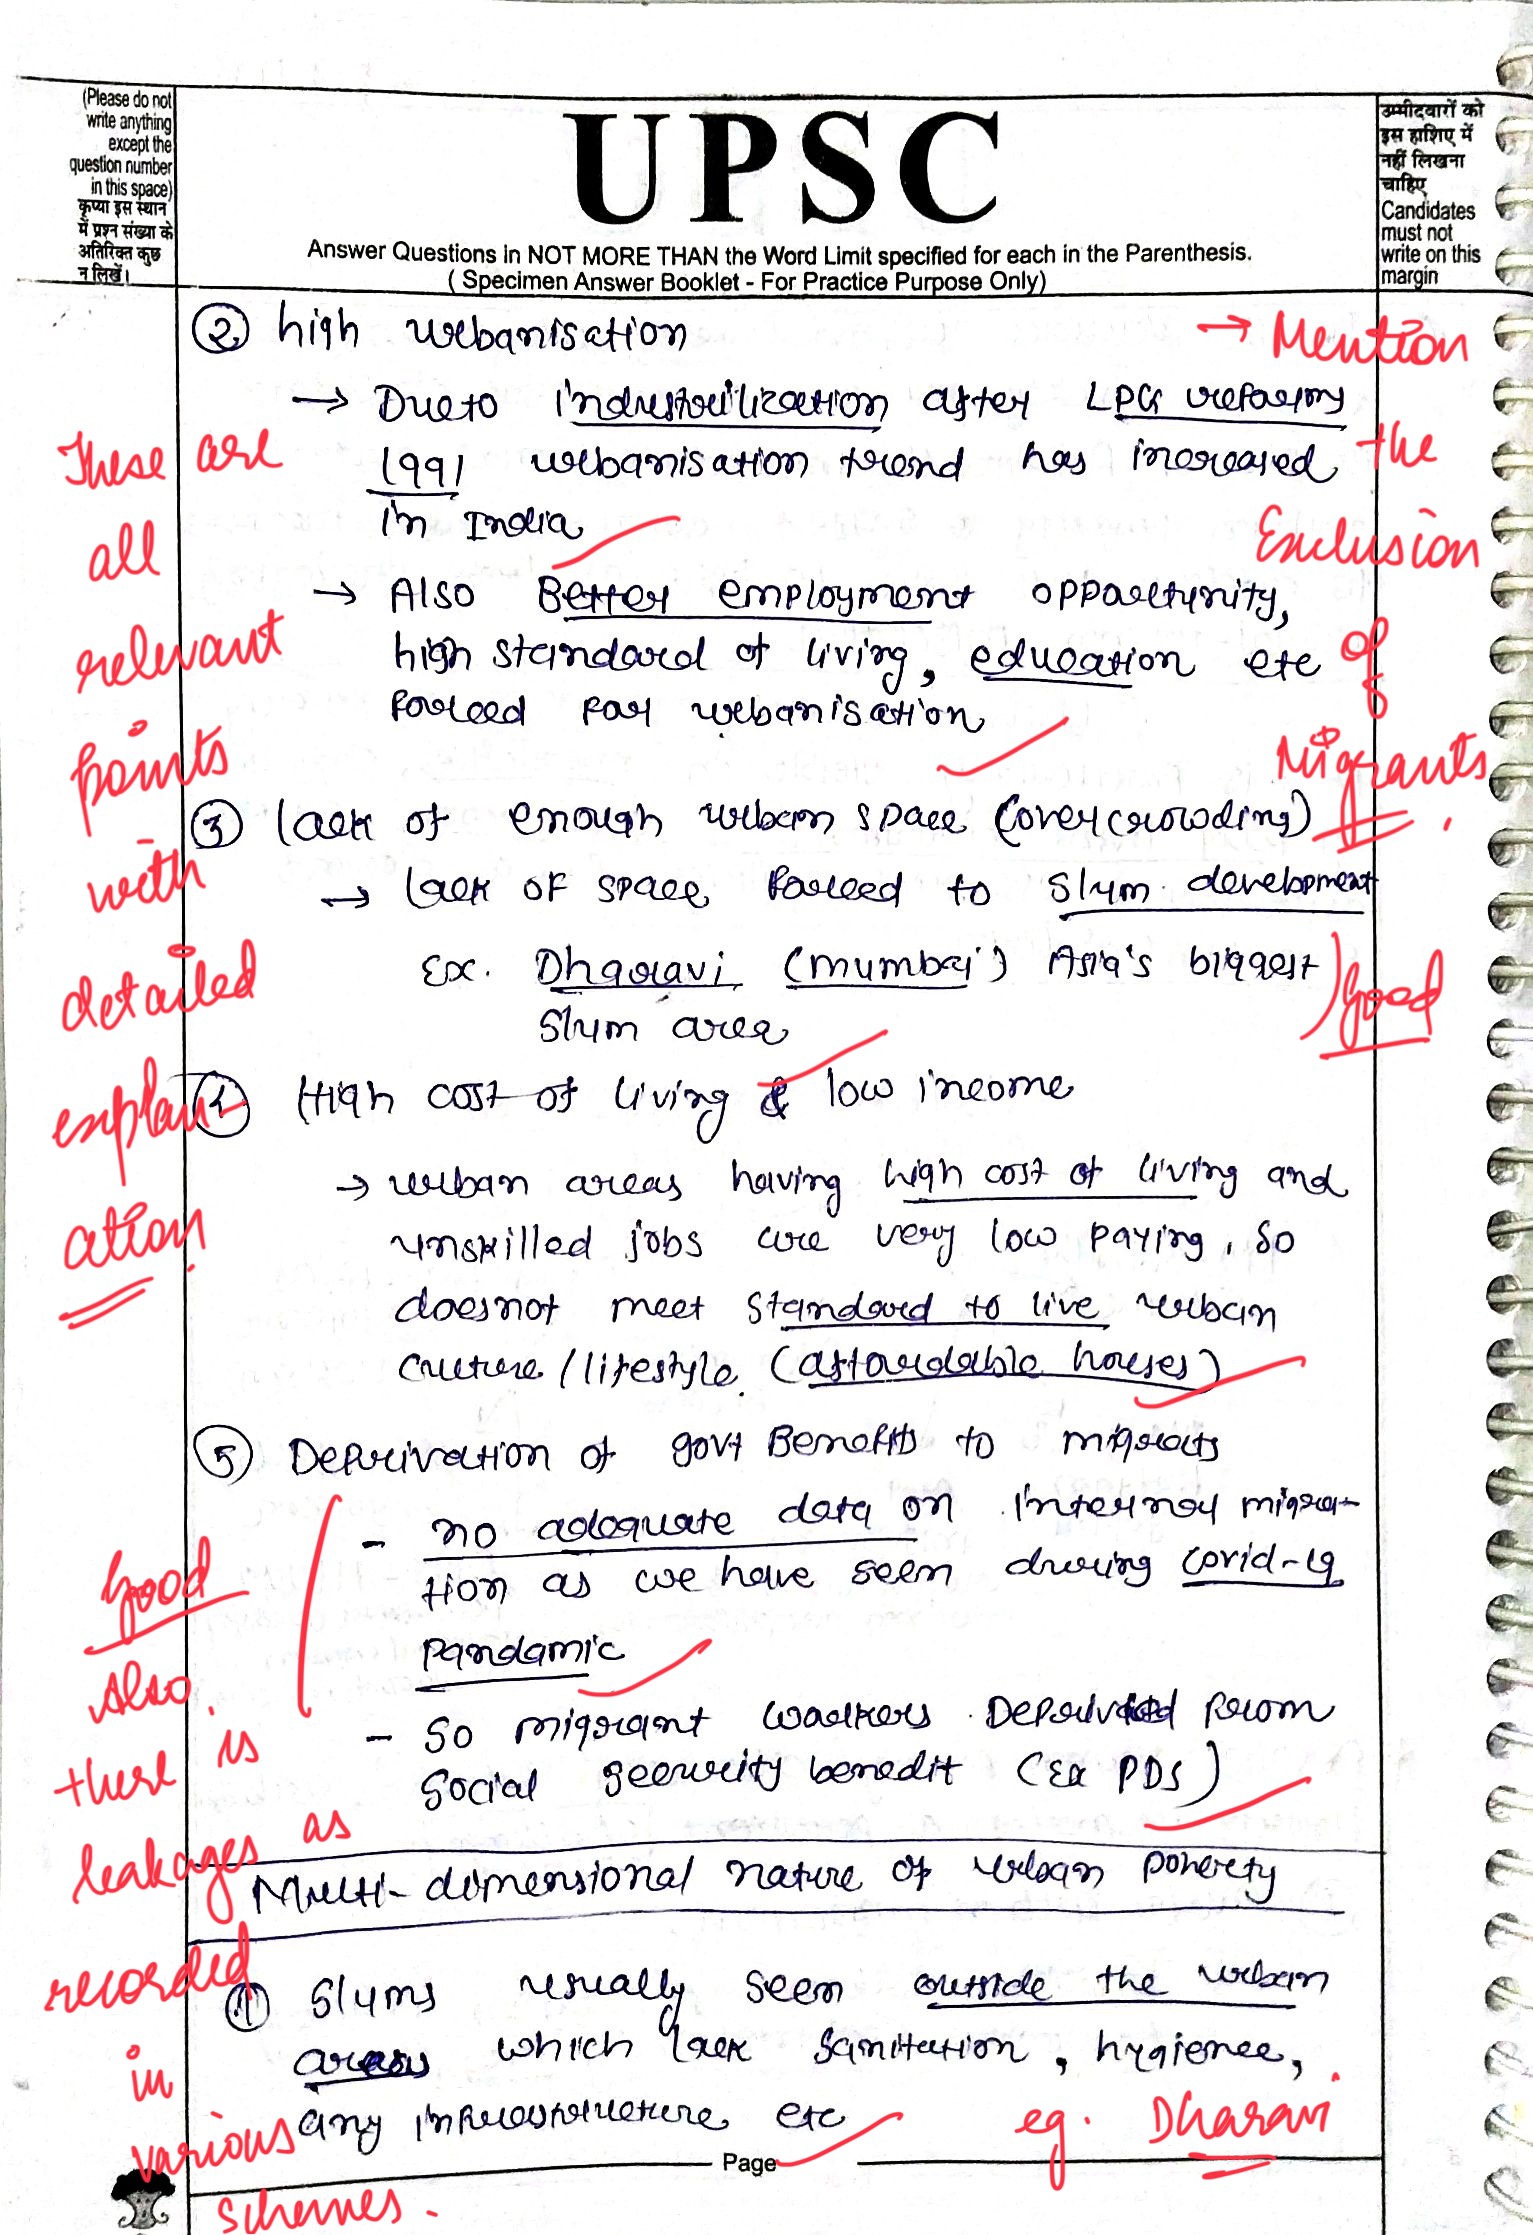 (Please do not
write anything
except the
question number
in this space)
कृप्या इस स्थान
में प्रश्न संख्या के
अतिरिक्त कुछ
न लिखें।
UPSC
Answer Questions in NOT MORE THAN the Word Limit specified for each in the Parenthesis.
( Specimen Answer Booklet - For Practice Purpose Only)
उम्मीदवारों को
इस हाशिए में
नहीं लिखना
चाहिए
Candidates
must not
write on this
margin
② high urbanisation
→ Due to industrilization after LPG reforms
1991 urbanisation trend has increased
in India
→ Also Better employment opportunity,
high standard of living, education etc
forced for urbanisation
③ lack of enough urban space (overcrowding)
→ lack of space forced to slum development
Ex. Dharavi (mumbai) Asia's biggest
slum area
④ High cost of living & low income
→ urban areas having high cost of living and
unskilled jobs are very low paying, so
doesnot meet standard to live urban
culture/lifestyle (affordable houses)
⑤ Deprivation of govt Benefits to migrats
- no adequate data on internal migra-
tion as we have seen during covid-19
pandamic
- so migrant workers Deprived from
social security benefit (Ex PDS)
Multi-dimensional nature of urban poverty
① Slums usually seen outside the urban
areas which lack sanitation, hygience,
any infrastructure etc
eg. Dharavi.
Page
These are
all
relevant
points
with
detailed
explan-
ation.
Good
Also,
there is
leakages as
recorded
in
various
schemes.
→ Mention
the
Exclusion
of
Migrants.
Good